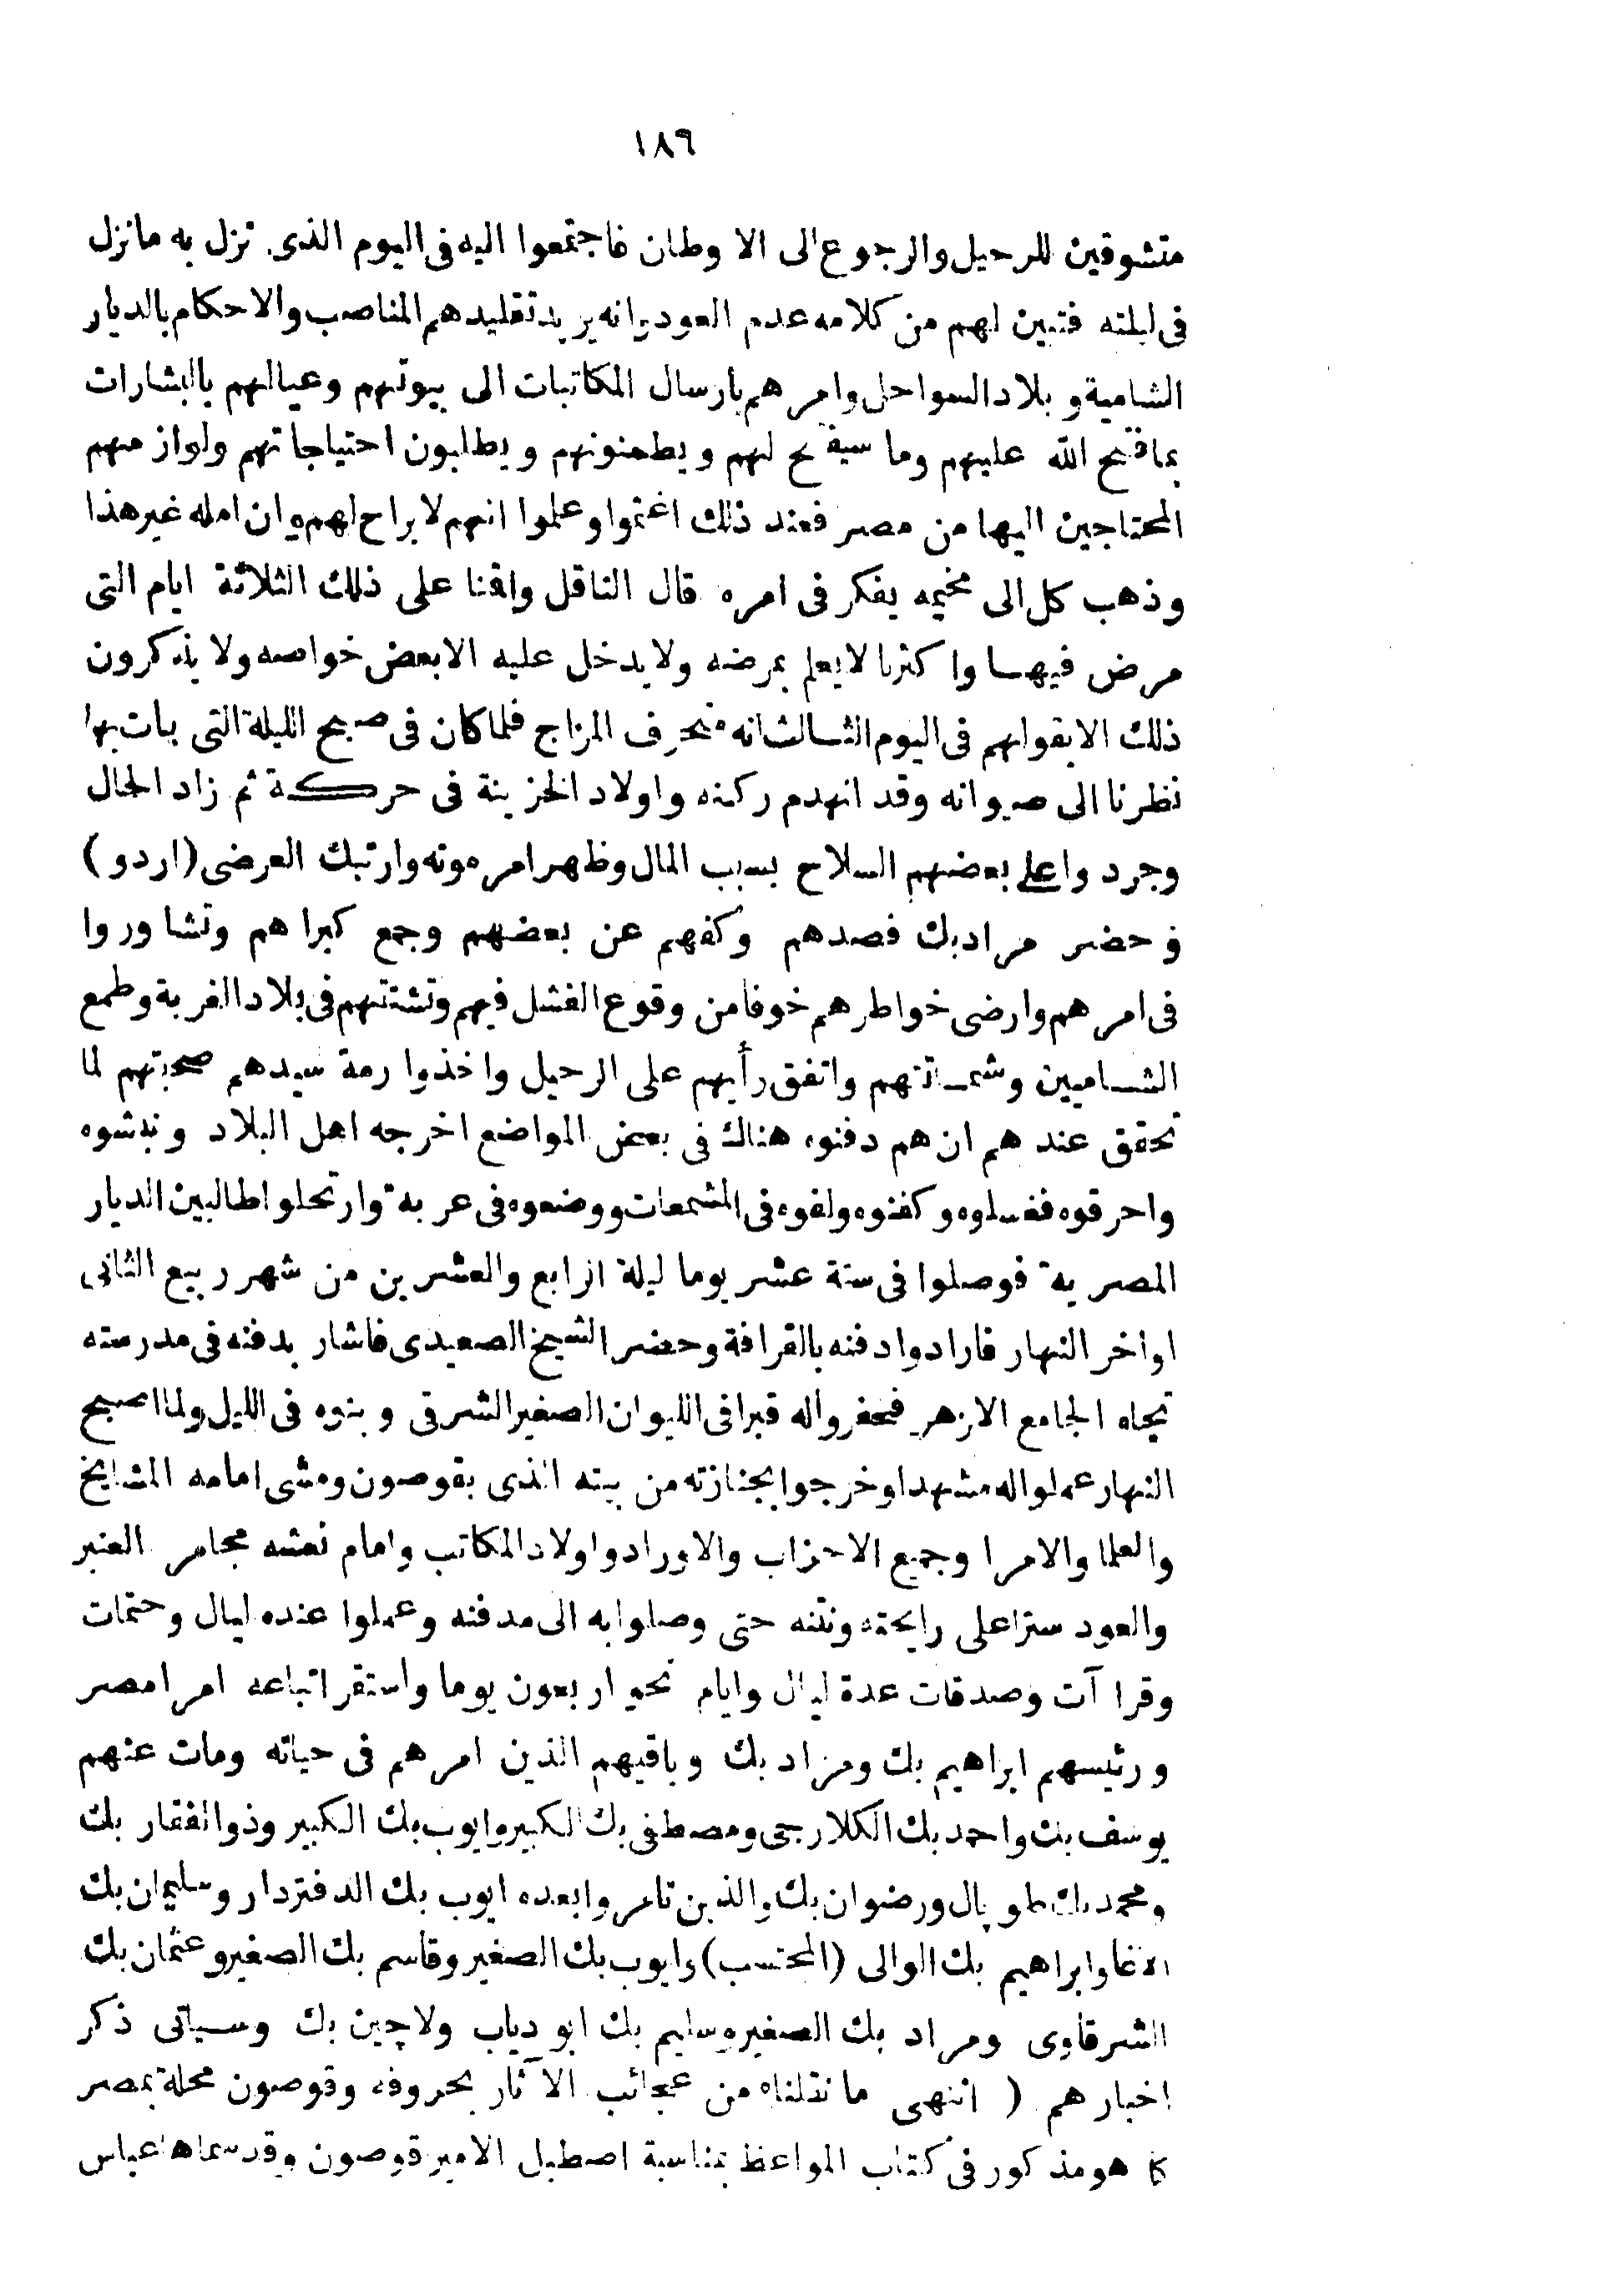 ١٨٦
متشوقين للرحيل والرجوع الى الاوطان فاجتمعوا اليه فى اليوم الذى نزل به مانزل
فى ليلته فتبين لهم من كلامه عدم العود وانه يريد تقليدهم المناصب والاحكام بالديار
الشامية وبلاد السواحل وامرهم بارسال المكاتبات الى بيوتهم وعيالهم بالبشارات
بما فتح الله عليهم وما سيفتح لهم ويطمنونهم ويطلبون احتياجاتهم ولوازمهم
المحتاجين اليها من مصر فعند ذلك اغتموا وعلموا انهم لا براح لهم وان امله غير هذا
وذهب كل الى مخيمه يفكر فى امره قال الناقل واقنا على ذلك الثلاثة ايام التى
مرض فيهـا واكثرنا لايعلم بمرضه ولايدخل عليه الابعض خواصه ولا يذكرون
ذلك الا بقولهم فى اليوم الثـالث انه منحرف المزاج فلما كان فى صبح الليلة التى بات بها
نظرنا الى صيوانه وقد انهدم ركنه واولاد الخزينة فى حركة ثم زاد الحال
وجردوا على بعضهم السلاح بسبب المال وظهر امر موته وارتبك العرضى (اردو)
وحضر مراد بك فصدهم وكفهم عن بعضهم وجمع كبراهم وتشاوروا
فى امرهم وارضى خواطرهم خوفا من وقوع الفشل فيهم وتشتتهم فى بلاد الغربة وطمع
الشـاميين وشمـاتتهم واتفق رأيهم على الرحيل واخذوا رمة سيدهم صحبتهم لما
تحقق عندهم ان هم دفنوه هناك فى بعض المواضع اخرجه اهل البلاد ونبشوه
واحرقوه فغسلوه وكفنوه ولفوه فى المشمعات ووضعوه فى عربة وارتحلوا طالبين الديار
المصرية فوصلوا فى ستة عشر يوما ليلة الرابع والعشرين من شهر ربيع الثانى
اواخر النهار فارادوا دفنه بالقرافة وحضر الشيخ الصعيدى فاشار بدفنه فى مدرسته
تجاه الجامع الازهر فحفروا له قبرا فى الليوان الصغير الشرقى وبنوه فى الليل ولما اصبح
النهار عملوا له مشهدا وخرجوا بجنازته من بيته الذى بقوصون ومشى امامه المشايخ
والعلما والامرا وجميع الاحزاب والاوراد واولاد المكاتب وامام نعشه مجامر العنبر
والعود سترا على رايحته ونتنه حتى وصلوا به الى مدفنه وعملوا عنده ليال وختمات
وقرا آت وصدقات عدة ليال وايام نحو اربعون يوما واستقر اتباعه امرا مصر
ورئيسهم ابراهيم بك ومراد بك وباقيهم الذين امرهم فى حياته ومات عنهم
يوسف بك واحمد بك الكلارجى ومصطفى بك الكبير وايوب بك الكبير وذوالفقار بك
ومحمد بك طوپال ورضوان بك والذين تامروا بعده ايوب بك الدفتردار وسليمان بك
الاغا وابراهيم بك الوالى (المحتسب) وايوب بك الصغير وقاسم بك الصغير وعثمان بك
الشرقاوى ومراد بك الصغير وسليم بك ابو دياب ولاچين بك وسـياتى ذكر
اخبارهم ( انتهى ما نقلناه من عجائب الآثار بحروفه وقوصون محلة بمصر
كا هو مذكور فى كتاب المواعظ بمناسبة اصطبل الامير قوصون وقد سماها عباس